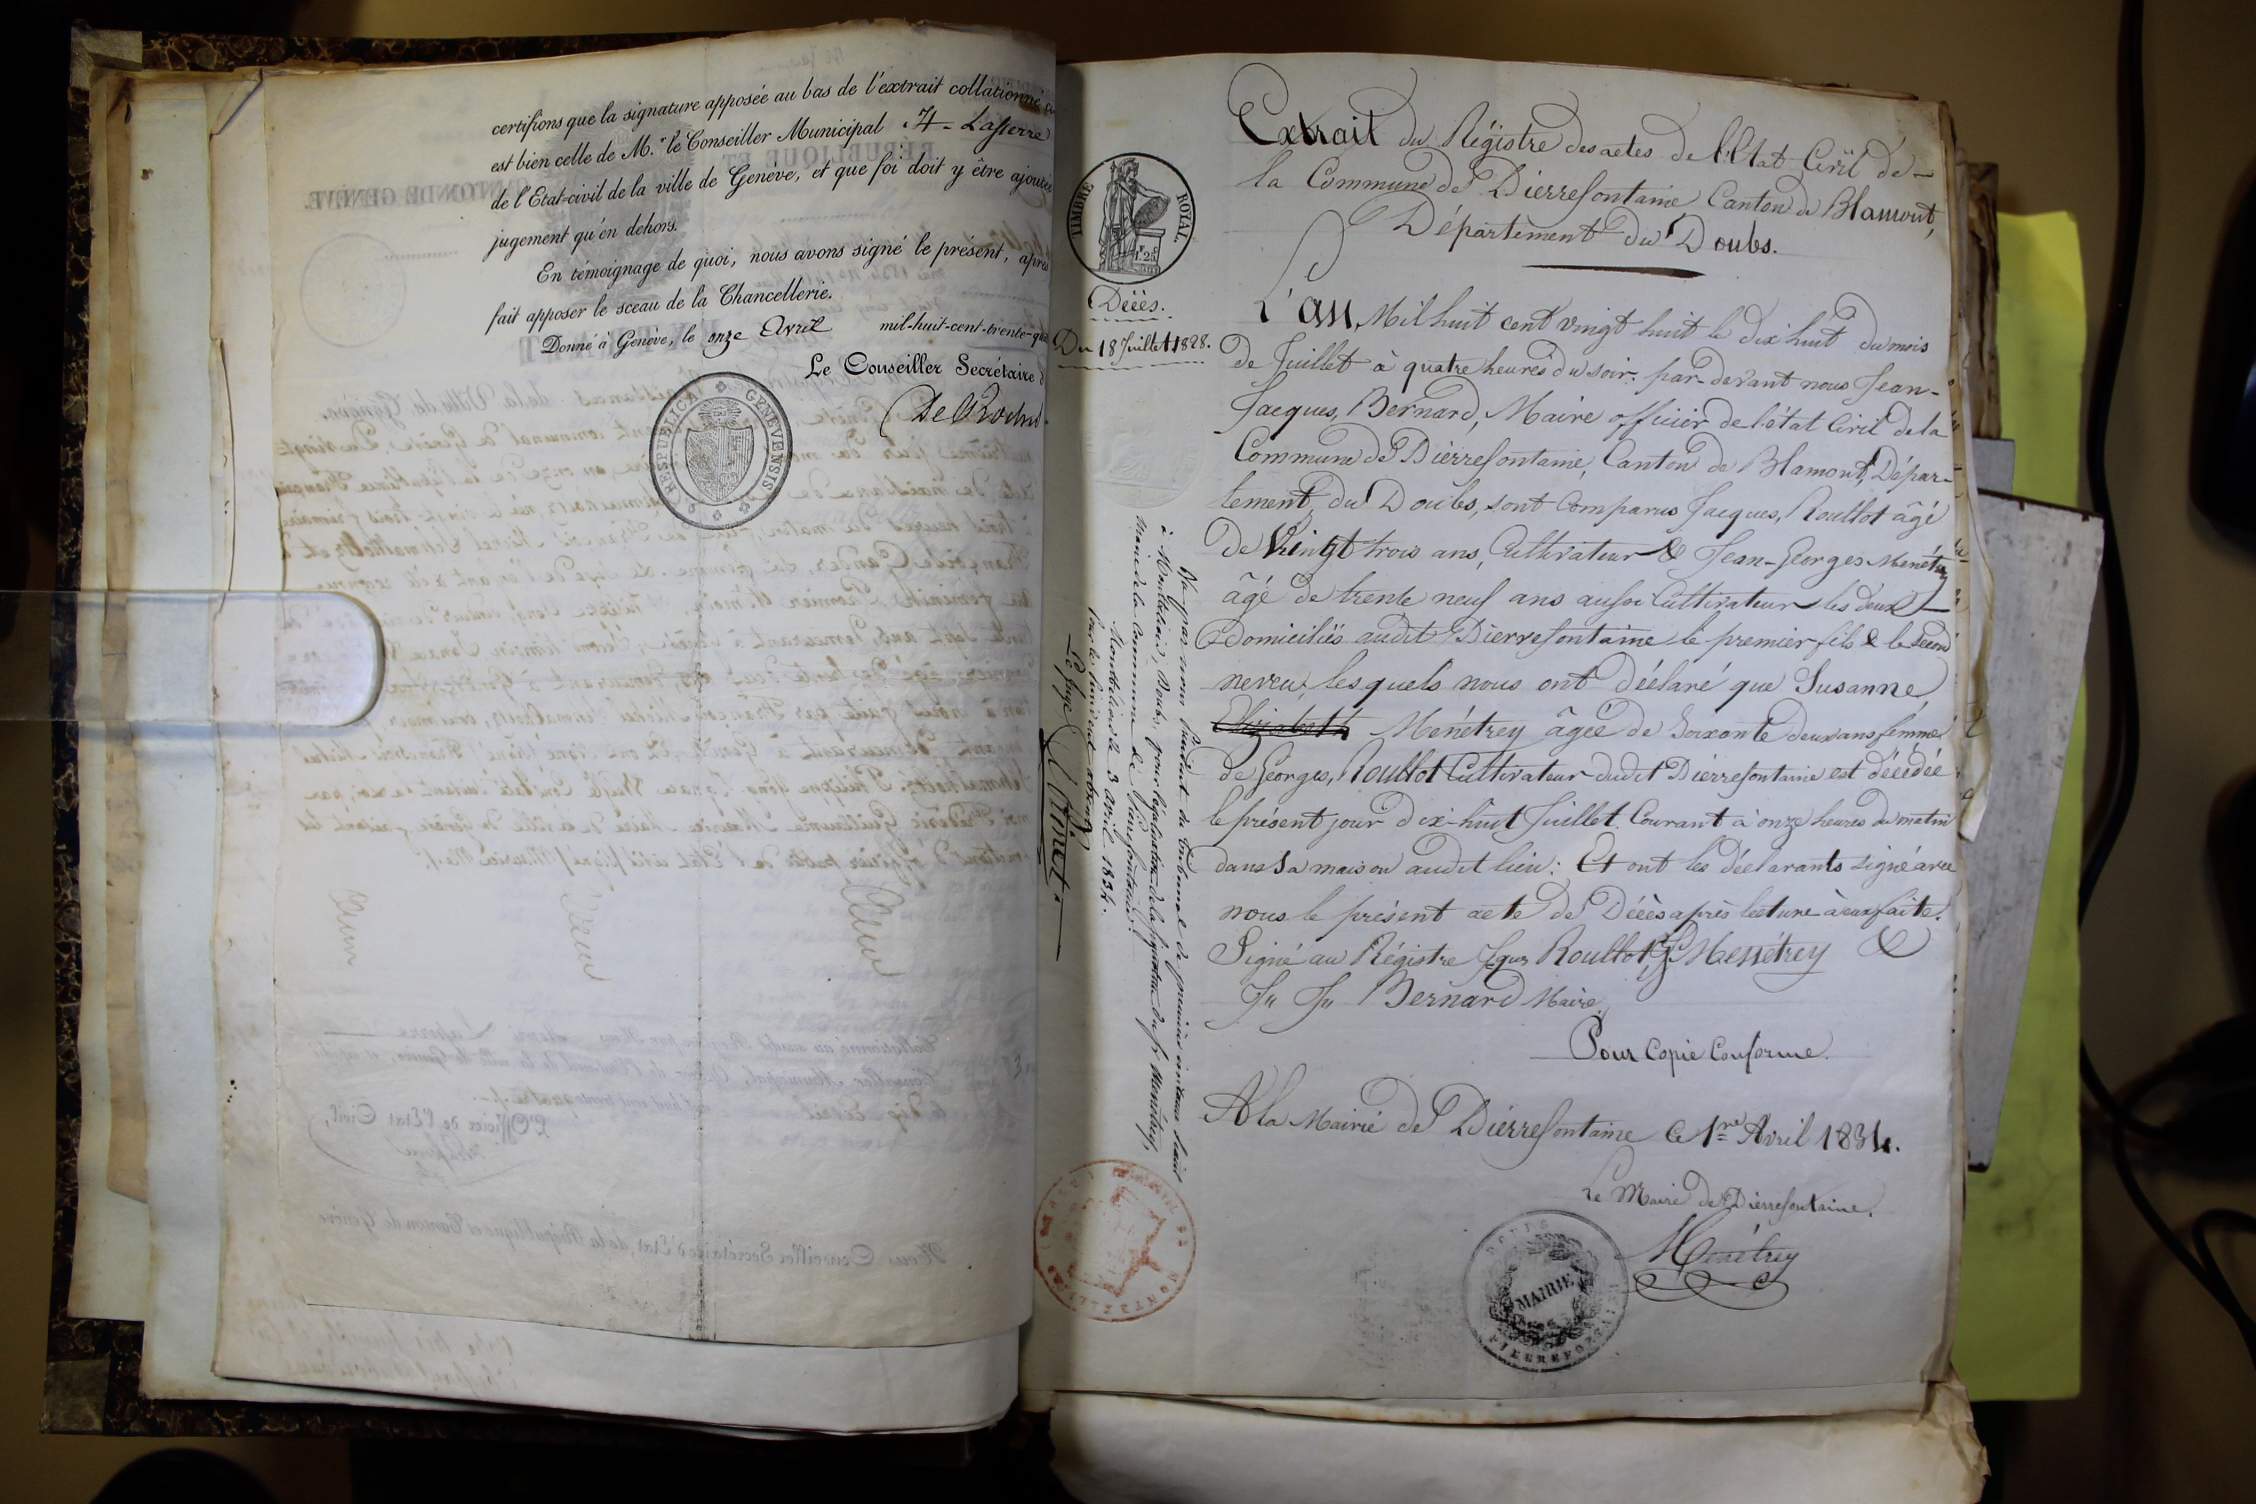 certifions que la signature apposée au bas de l'extrait collationné
est bien celle de M.r le Conseiller Municipal Lasserre
de l'Etat-civil de la ville de Genève, et que foi doit y être ajoutée
jugement qu'en dehors.
En témoignage de quoi, nous avons signé le présent, après
fait apposer le sceau de la Chancellerie.
Donné à Genève, le onze Avril mil-huit-cent-trente-qua
Le Conseiller Secrétaire d
RESPUBLICA GENEVENSIS
TIMBRE ROYAL
1.F 25
Décès.
Du 18 Juillet 1828.
Extrait du Régistre des actes de l'Etat Civil de
la Commune de Pierrefontaine Canton de Blamont,
Département du Doubs.
L'an Mil huit cent vingt huit le dix huit du mois
de Juillet à quatre heures du soir: par-devant nous Jean-
Jacques, Bernard, Maire officier de l'état Civil de la
Commune de Pierrefontaine, Canton de Blamont, Dépar-
tement du Doubs, sont Comparus Jacques, Roullot âgé
de Vingt trois ans, Cultivateur & Jean-Georges Menétrey
âgé de trente neuf ans aussi Cultivateur les deux
Domiciliés audit Pierrefontaine le premier fils & le second
neveu, lesquels nous ont déclaré que Susanne
Elizabeth Menétrey âgée de Soixante deux ans femme
de Georges, Roullot Cultivateur dudit Pierrefontaine est décédée
le présent jour dix-huit Juillet Courant à onze heures du matin
dans Sa maison audit lieu: Et ont les déclarants signé avec
nous le présent acte de Décès après lecture à eux faite.
Signé au Régistre Jques Roullot, J. G. Menétrey &
Jn Js Bernard Maire.
Pour Copie Conforme.
A la Mairie de Pierrefontaine Ce 1re Avril 1834.
Le Maire de Pierrefontaine.
Menétrey
DOUBS
MAIRIE
PIERREFONTAINE
Vu par nous Président du Tribunal de première instance séant
à Montbéliard, Doubs, pour légalisation de la signature du Sr Menétrey,
Maire de la Commune de Pierrefontaine.
Montbéliard le 3 avril 1834.
Pour le Président absent
Le Juge